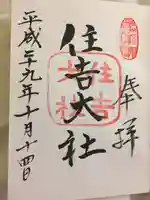 奉拝
住吉大社
平成二十九年十月十四日
住吉
大社